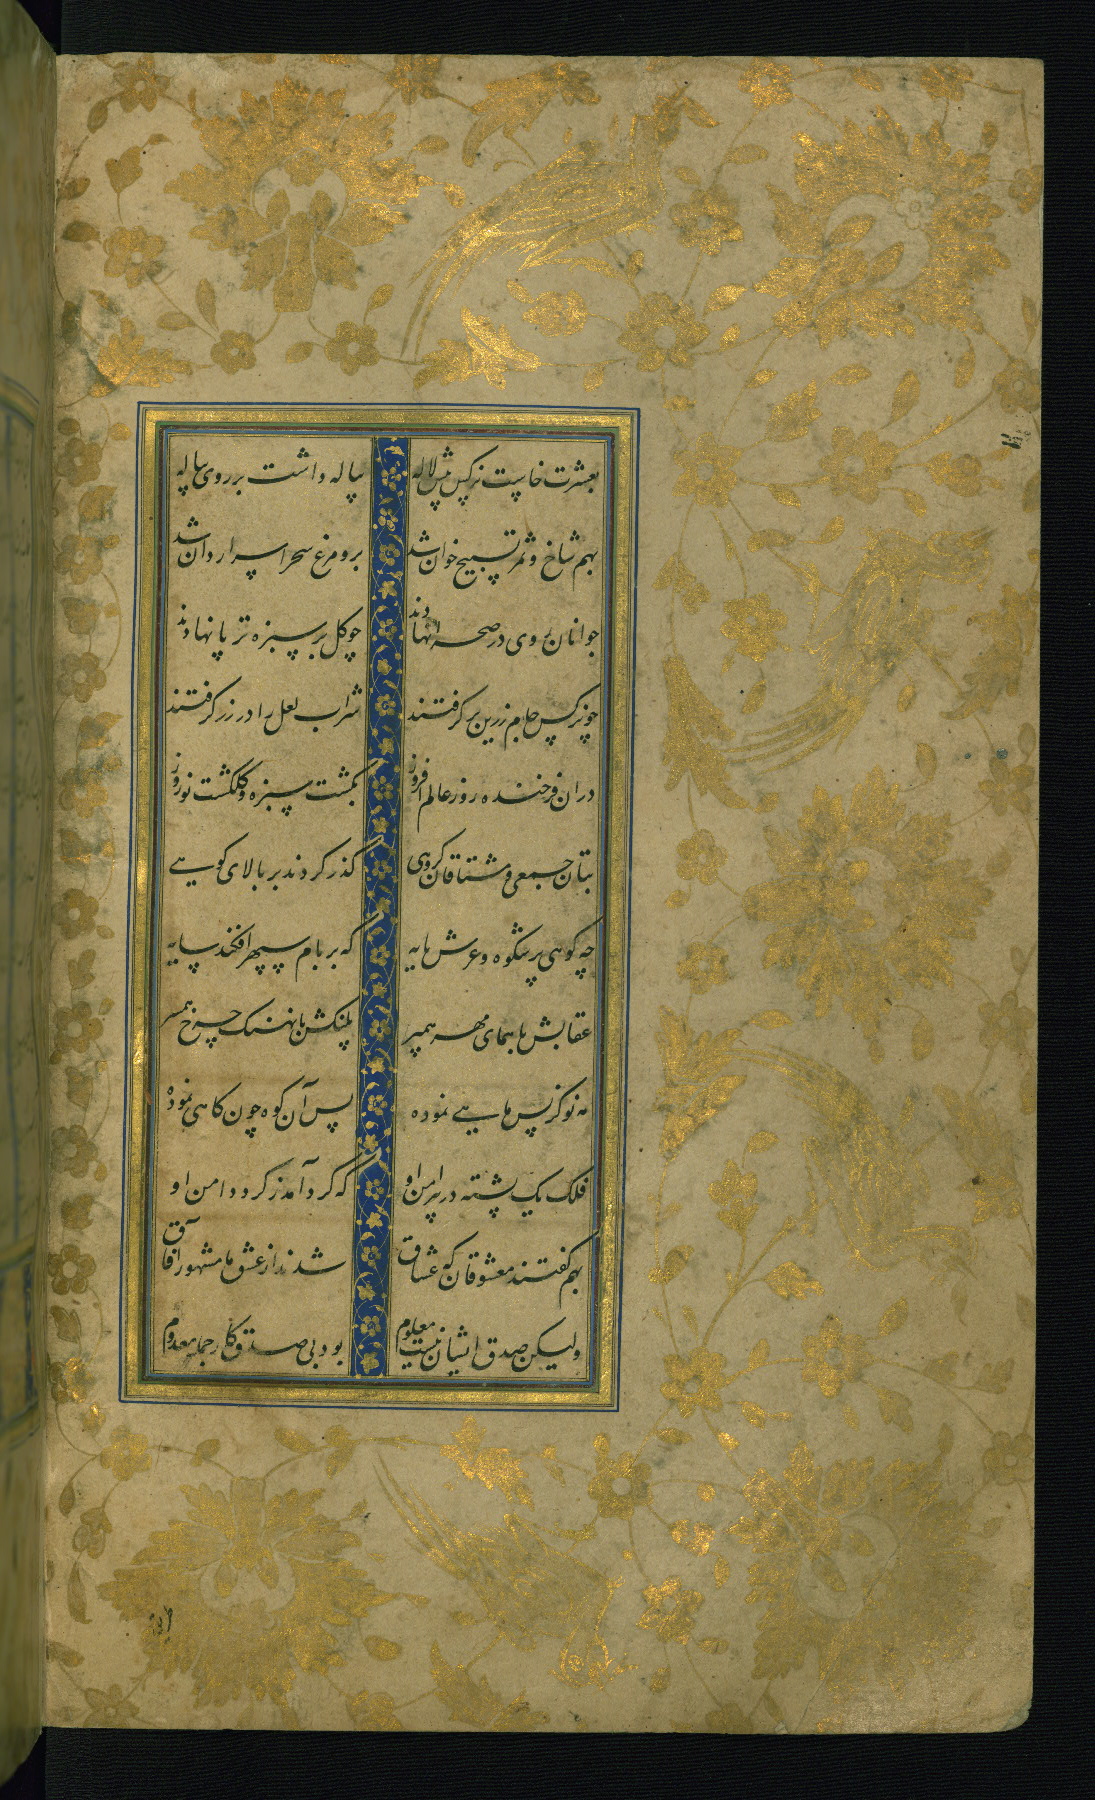 بعشرت خاست نرکس پیش لاله پیاله داشت بر روی پیاله
بهم شاخ و ثمر تسبیح خوان شد برو مرغ سحر اسرار دان شد
جوانان روی در صحرا نهادند چو کل بر سبزه تر پا نهادند
چو نرکس جام زرین بر کرفتند شراب لعل را در زر کرفتند
در ان فرخنده روز عالم افروز بکشت سبزه و کلکشت نوروز
بتان جمعی و مشتاقان کروهی کذر کردند بر بالای کوهی
چه کوهی پر شکوه و عرش پایه که بر بام سپهر افکند سایه
عقابش با همای مهر همپر پلنکش با نهنک چرخ همسر
مه نو کز پس ماهی نموده پس آن کوه چون کاهی نموده
فلک یک پشته در پیرامن او که کرد آمد ز کرد دامن او
بهم کفتند معشوقان که عشاق شدند از عشق ما مشهور آفاق
ولیکن صدق ایشان نیست معلوم بود بی صدق کار جمله معدوم